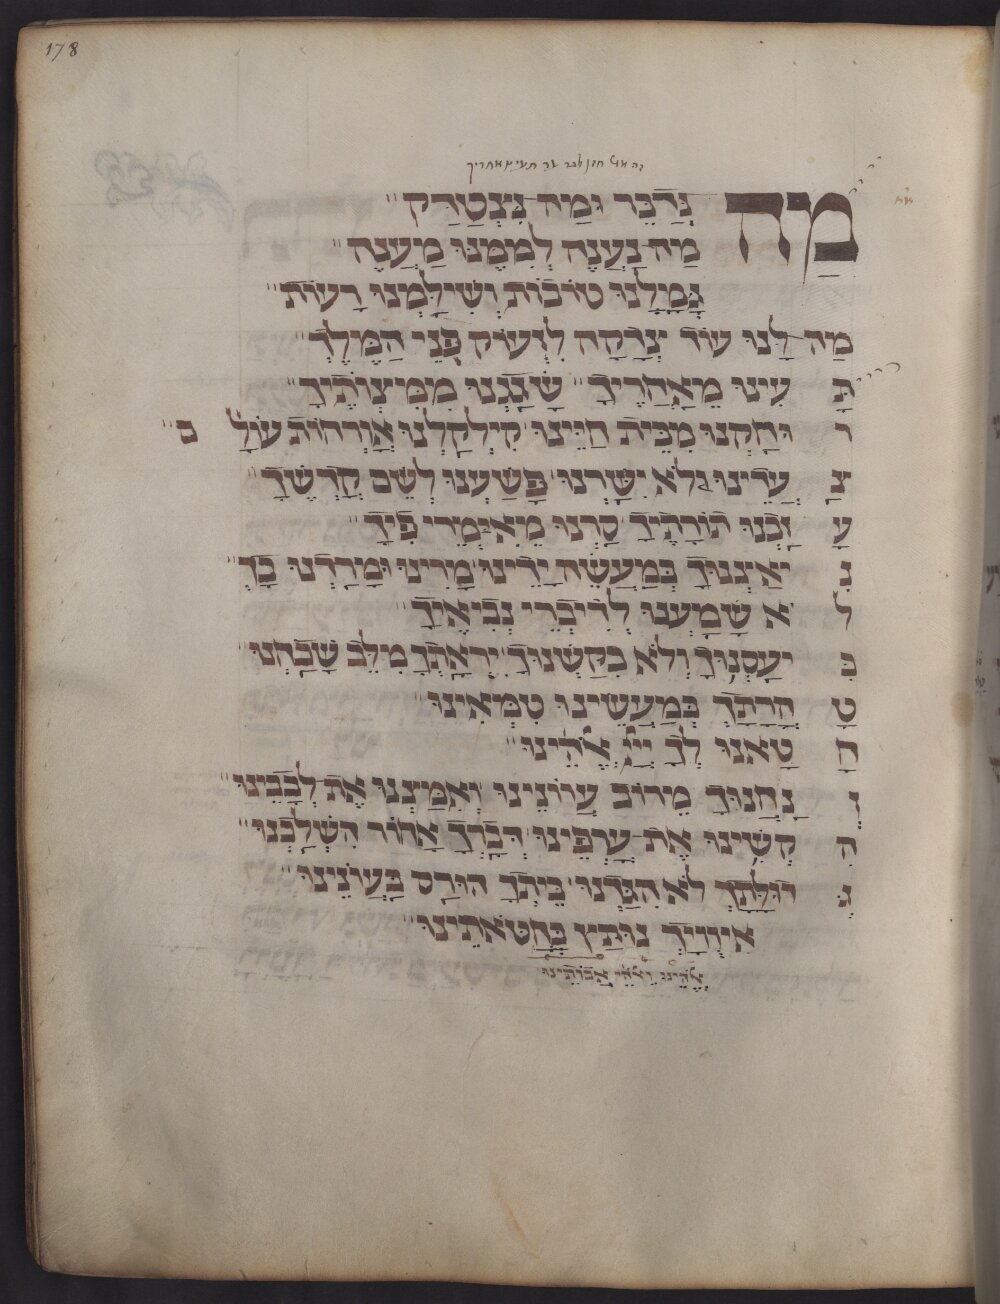 178
מַה נְּדַבֵּר וּמַה נִּצְטַדַּק
מַה נַעֲנֶה לְמִמֶּנּוּ מַעֲנֶה
גְּמָלָנוּ טוֹבוֹת וְשִׁילַּמְנוּ רָעוֹת
מַה לָּנוּ עוֹד צְדָקָה לִזְעוֹק פְּנֵי הַמֶּלֶךְ
תָּ עִינוּ מֵאַחֲרֶיךָ שָׁגָגְנוּ מִמִּצְוֹתֶיךָ
ר וּחַקְנוּ מִבֵּית חַיֵּינוּ קִילְקַלְנוּ אֳרְחוֹת עוֹל
צ עֲדֵינוּ לֹא יִשָּׁרְנוּ פָּשַׁעְנוּ לְשֵׁם קָדְשֶׁךָ
עָ זַבְנוּ תוֹרָתֶיךָ סַרְנוּ מֵאִימְרֵי פִיךָ
נִ יאַצְנוּךָ בְּמַעֲשֵׂה יָדֵינוּ מָרִינוּ וּמָרַדְנוּ בָּךְ
ל א שָׁמַעְנוּ לְדִיבְרֵי נְבִיאֶיךָ
כִּ יעַסְנוּךָ וְלֹא בִקַּשְׁנוּךָ יִרְאָתְךָ מִלֵּב שָׁכַחְנוּ
טָ הֳרָתָךְ בְּמַעֲשֵׂינוּ טִמֵּאינוּ
חָ טָאנוּ לְךָ יְיָ אֱלֹהֵינוּ
זְ נַחְנוּךָ מֵרוֹב עֲוֹנֵינוּ וְאִמַּצְנוּ אֶת לְבָבֵינוּ
הִ קְשִׁינוּ אֶת עָרְפֵּינוּ דְּבָרְךָ אָחוֹר הִשְׁלַכְנוּ
גְּ דוּלָּתָךְ לֹא הִכַּרְנוּ בֵּיתְךָ הוּרַס בַּעֲוֹנֵינוּ
אִיוּוּיָךְ נוּתַּץ בְּחַטֹּאתֵינוּ
אֱלֹהֵינוּ וֵאלֹהֵי אֲבוֹתֵינוּ